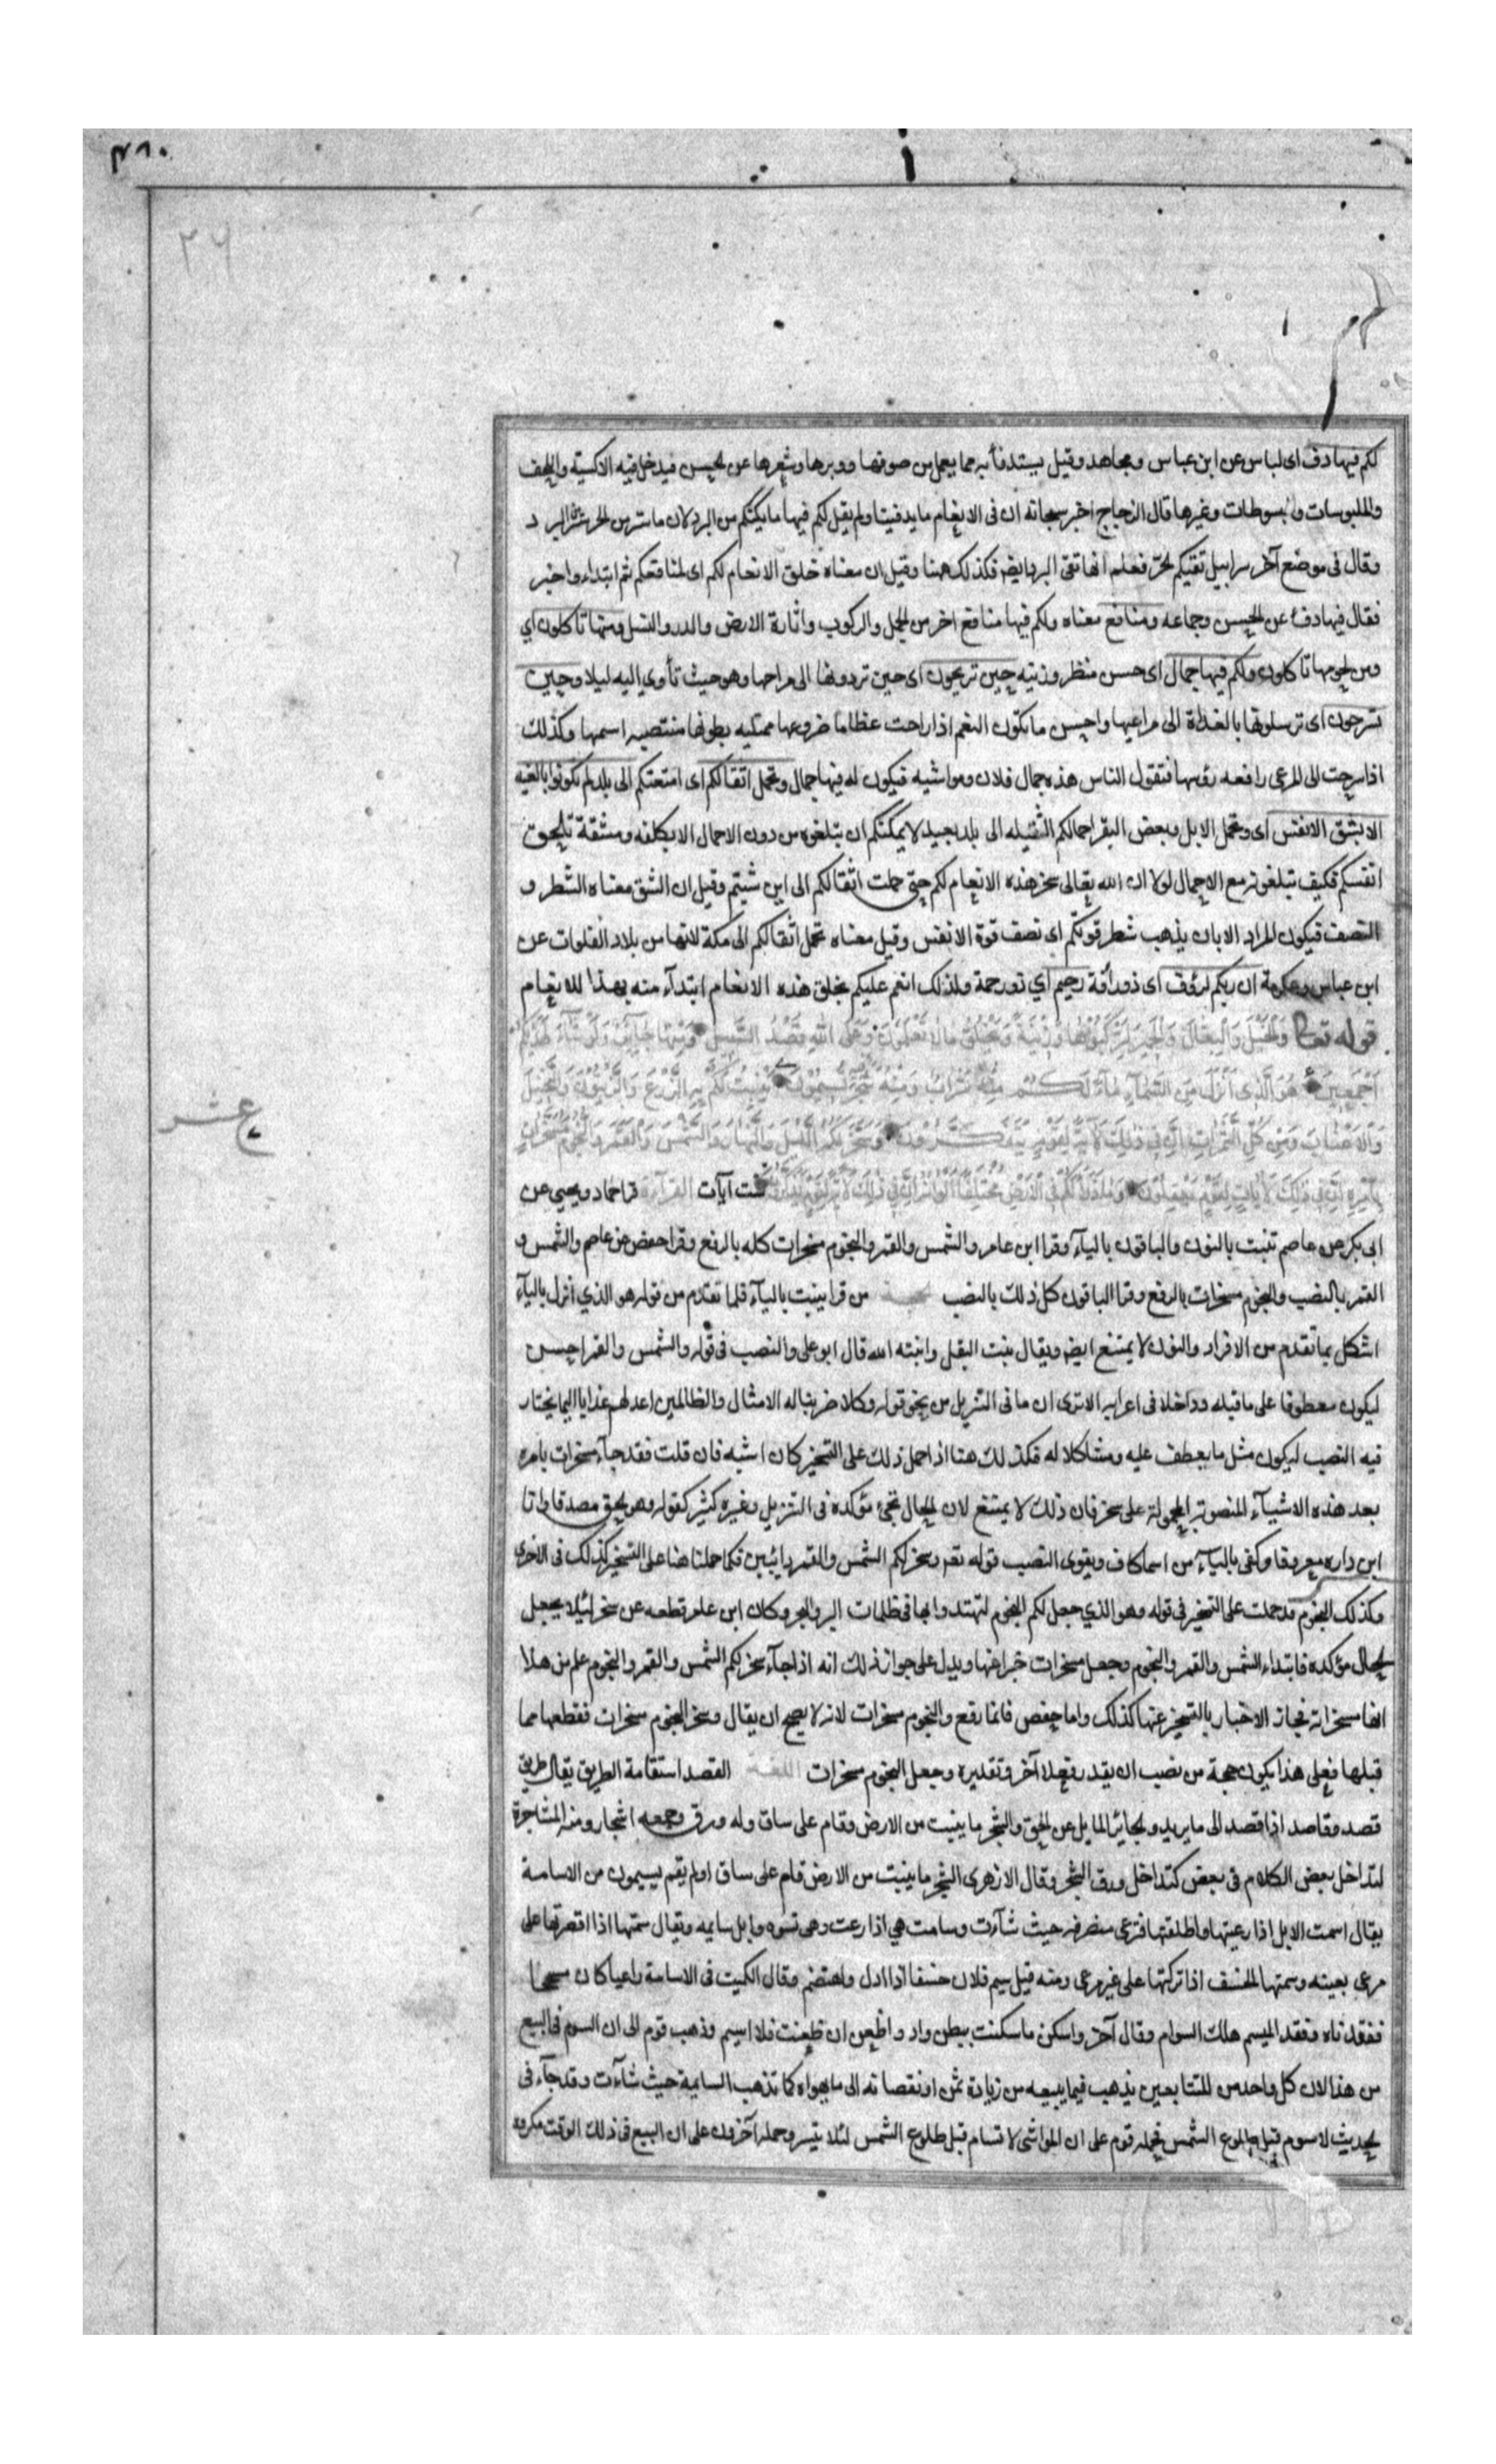 ٣٨٠
٢٦
لكم فيها دفء اى لباس عن ابن عباس ومجاهد وقيل يستدفأ به مما يعمل من صوفها ووبرها وشعرها عن الحسن فيدخل فيه الاكسية واللحف
والملبوسات والمبسوطات وغيرها قال الزجاج اخبر سبحانه ان فى الانعام ما يدفينا ولم يقل لكم فيها ما يكنكم من البرد لان ما ستر من الحر ستر من البرد
وقال فى موضع آخر سرابيل تقيكم الحرّ فعلم انها تقى البرد ايضا فكذلك هنا وقيل ان معناه خلق الانعام لكم اى لمنافعكم ثم ابتداء واخبر
فقال فيها دفء عن الحسن وجماعه ومنافع معناه ولكم فيها منافع اخر من الحمل والركوب واثارة الارض والدر والنسل ومنها تاكلون اي
ومن لحومها تاكلون ولكم فيها جمال اى حسن منظر وزنيه حين تريحون اى حين تردونها الى مراحها وهو حيث تأوي اليه ليلا وحين
تسرحون اى ترسلونها بالغداة الى مراعيها واحسن ما تكون النعم اذا راحت عظاما ضروعها ممتليه بطونها منتصبه اسنمها وكذلك
اذا سرحت الى المرعى رافعه رؤسها فتقول الناس هذه جمال فلان ومواشيه فيكون له فيها جمال وتحمل اثقالكم اى امتعتكم الى بلد لم تكونوا بالغيه
الا بشق الانفس اى وتحمل الابل وبعض البقر احمالكم الثقيله الى بلد بعيد لا يمكنكم ان تبلغوه من دون الاحمال الا بكلفه ومشقة تلحق
انفسكم فكيف تبلغونه مع الاحمال لولا ان الله تعالى سخر هذه الانعام لكم حتى حملت اثقالكم الى اين شيتم وقيل ان الشق معناه الشطر و
النصف فيكون المراد الا بان يذهب شطر قوتكم اى نصف قوة الانفس وقيل معناه تحمل اثقالكم الى مكة لانها من بلاد الفلوات عن
ابن عباس وعكرمة ان ربكم لرؤف اى ذو رأفة رحيم اي ذو رحمة ولذلك انعم عليكم بخلق هذه الانعام ابتدآء منه بهذا الانعام
قوله تعالى وَالْخَيْلَ وَالْبِغَالَ وَالْحَمِيرَ لِتَرْكَبُوهَا وَزِينَةً وَيَخْلُقُ مَا لَا تَعْلَمُونَ وَعَلَى اللهِ قَصْدُ السَّبِيلِ وَمِنْهَا جَآئِرٌ وَلَوْ شَآءَ لَهَدٰيكُمْ
اَجْمَعِينَ هُوَ الَّذِى اَنْزَلَ مِنَ السَّمَآءِ مَآءً لَكُمْ مِنْهُ شَرَابٌ وَمِنْهُ شَجَرٌ فِيهِ تُسِيمُونَ يُنْبِتُ لَكُمْ بِهِ الزَّرْعَ وَالزَّيْتُونَ وَالنَّخِيلَ
وَالْاَعْنَابَ وَمِنْ كُلِّ الثَّمَرَاتِ اِنَّ فِى ذٰلِكَ لَآيَةً لِقَوْمٍ يَتَفَكَّرُونَ وَسَخَّرَ لَكُمُ اللَّيْلَ وَالنَّهَارَ وَالشَّمْسَ وَالْقَمَرَ وَالنُّجُومُ مُسَخَّرَاتٌ
عشر
بِاَمْرِهِ اِنَّ فِى ذٰلِكَ لَآيَاتٍ لِقَوْمٍ يَعْقِلُونَ وَمَا ذَرَاَ لَكُمْ فِى الْاَرْضِ مُخْتَلِفًا اَلْوَانُهُ اِنَّ فِى ذٰلِكَ لَآيَةً لِقَوْمٍ يَذَّكَّرُونَ ست آيات القرآءة قرا حماد ويحيى عن
ابى بكر عن عاصم ننبت بالنون والباقون بالياء وقرا ابن عامر والشمس والقمر والنجوم مسخرات كله بالرفع وقرا حفص عن عاصم والشمس و
القمر بالنصب والنجوم مسخرات بالرفع وقرا الباقون كل ذلك بالنصب الحجة من قرا ينبت بالياء فلما تقدم من قوله هو الذي انزل بالياء
اشكل بما تقدم من الافراد والنون لا يمتنع ايضا ويقال نبت البقل وانبته الله قال ابو على والنصب فى قوله والشمس والقمر احسن
ليكون معطوفا على ما قبله وداخلا فى اعرابه الا ترى ان ما فى التنزيل من نحو قوله وكلا ضربنا له الامثال والظالمين اعد لهم عذابا اليما يختار
فيه النصب ليكون مثل ما يعطف عليه ومشاكلا له فكذلك هنا اذا حمل ذلك على التسخير كان اشبه فان قلت فقد جآء مسخرات بامره
بعد هذه الاشيآء المنصوبة المحمولة على سخر فان ذلك لا يمتنع لان الحال تجئ مؤكده فى التنزيل وغيره كثير كقوله وهو الحق مصدقا وانا
ابن داره معروفا وكفى بالياء من اسما كاف ويقوى النصب قوله تعه وسخر لكم الشمس والقمر دائبين فكما حملتا هنا على التسخير كذلك فى الاخرى
وكذلك النجوم قد حملت على التسخير فى قوله وهو الذي جعل لكم النجوم لتهتدوا بها فى ظلمات البر والبحر وكان ابن عامر قطعه عن سخر لئلا يجعل
الحال مؤكده فابتداء الشمس والقمر والنجوم وجعل مسخرات خبرا عنها ويدل على جواز ذلك انه اذا جآء سخر لكم الشمس والقمر والنجوم علم من هذا
انها مسخرات فجاز الاخبار بالتسخير عنها كذلك واما حفص فانما رفع والنجوم مسخرات لانه لا يصح ان يقال وسخر النجوم مسخرات فقطعها مما
قبلها فعلى هذا يكون حجة من نصب ان يقدر فعلا آخر وتقديره وجعل النجوم مسخرات اللغة القصد استقامة الطريق يقال طريق
قصد وقاصد اذا قصد الى ما يريد والجائر المايل عن الحق والشجر ما ينبت من الارض وقام على ساق وله ورق وجمعه اشجار ومنه المشاجرة
لتداخل بعض الكلام فى بعض كتداخل ورق الشجر وقال الازهرى الشجر ما ينبت من الارض قام على ساق او لم يقم يسيمون من الاسامة
يقال اسمت الابل اذا رعيتها واطلقتها فترعى متصرفه حيث شآءت وسامت هي اذا رعت وهى تسوم وابل سايمه ويقال سمتها اذا اقصرتها على
مرعى بعينه وسمتها الخسف اذا تركتها على غير مرعى ومنه قيل سيم فلان خسفا اذا اذل واهتضم وقال الكميت فى الاسامة راعيا كان مسجحا
ففقدناه وفقد المسيم هلك السوام وقال آخر واسكن ما سكنت ببطن واد واظعن ان ظعنت فلا اسيم وذهب قوم الى ان السوم فى البيع
من هذا لان كل واحد من المتبايعين يذهب فيما يبيعه من زيادة ثمن او نقصانه الى ما يهواه كما تذهب السايمة حيث شآءت وقد جآء فى
الحديث لا سوم قبل طلوع الشمس فحمله قوم على ان المواشى لا تسام قبل طلوع الشمس لئلا تنتشر وحمله آخرون على ان البيع فى ذلك الوقت مكروه